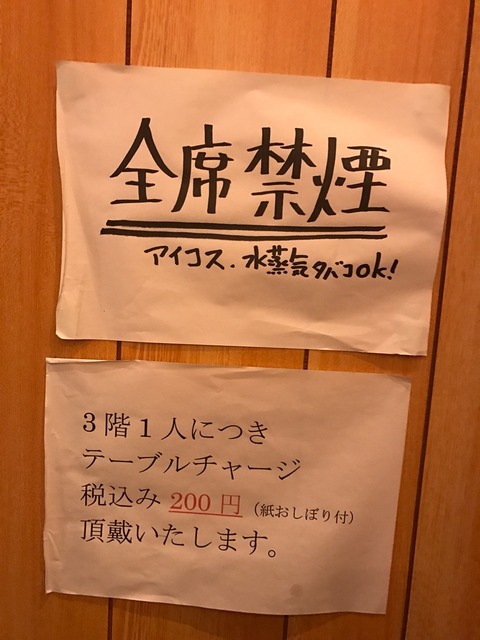 全席禁煙
アイコス.水蒸気タバコok!
3階1人につき
テーブルチャージ
税込み 200円（紙おしぼり付）
頂戴いたします。